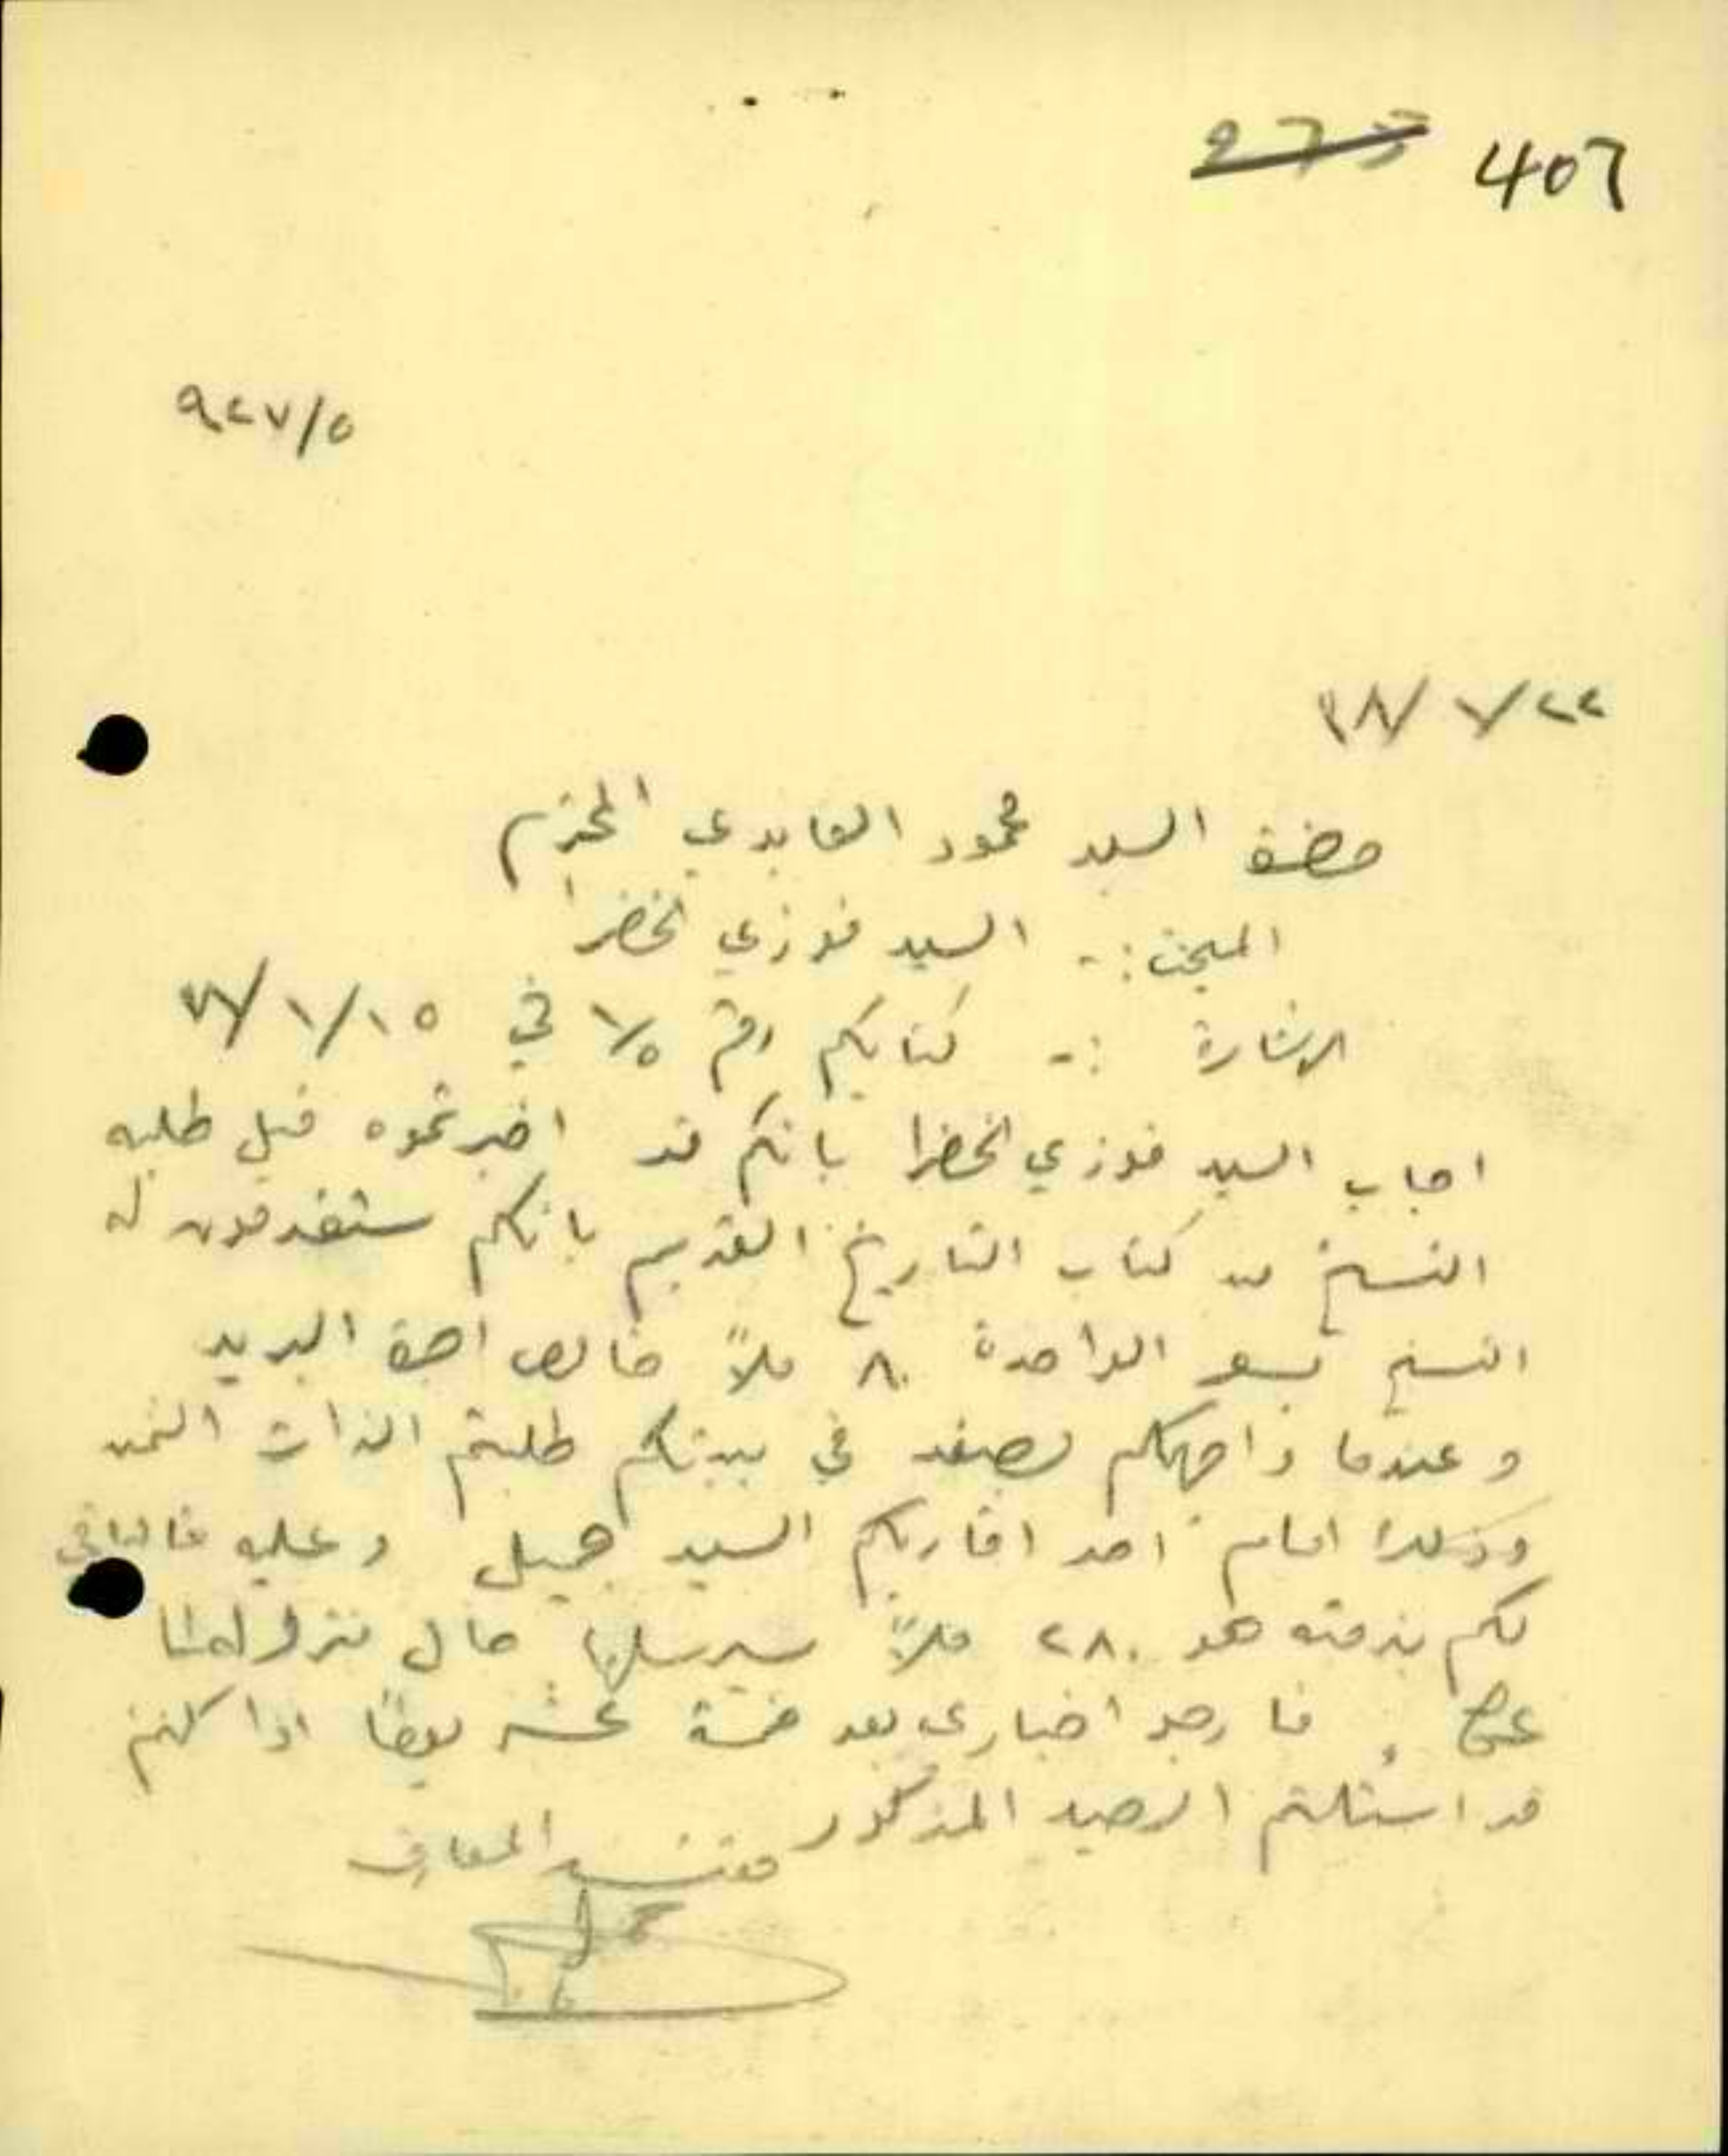 406
٩٢٧/٥
٢٢/٧/٣٨
حضرة السيد محمود العابدي المحترم
المبحث :- السيد فوزي الخضرا
الاشارة :- كتابكم رقم ١/٥ في ١٥/١/
اجاب السيد فوزي الخضرا بانكم قد اخبرتموه قبل طلبه
النسخ من كتاب التاريخ القديم بانكم ستقدمون له
النسخ بسعر الواحدة ٨٠ ملاً خالص اجرة البريد
وعندما واجهكم بصفد في بيتكم طلبتم الثمن
امام احد اقاربكم السيد جميل وعليه فالباقي
لكم بذمته هو ٢٨٠ ملاً سيرسلها حال
فارجو اخباري بعد خمسة عشر يوماً اذا كنتم
قد استلمتم الرصيد المذكور
مفتش المعارف